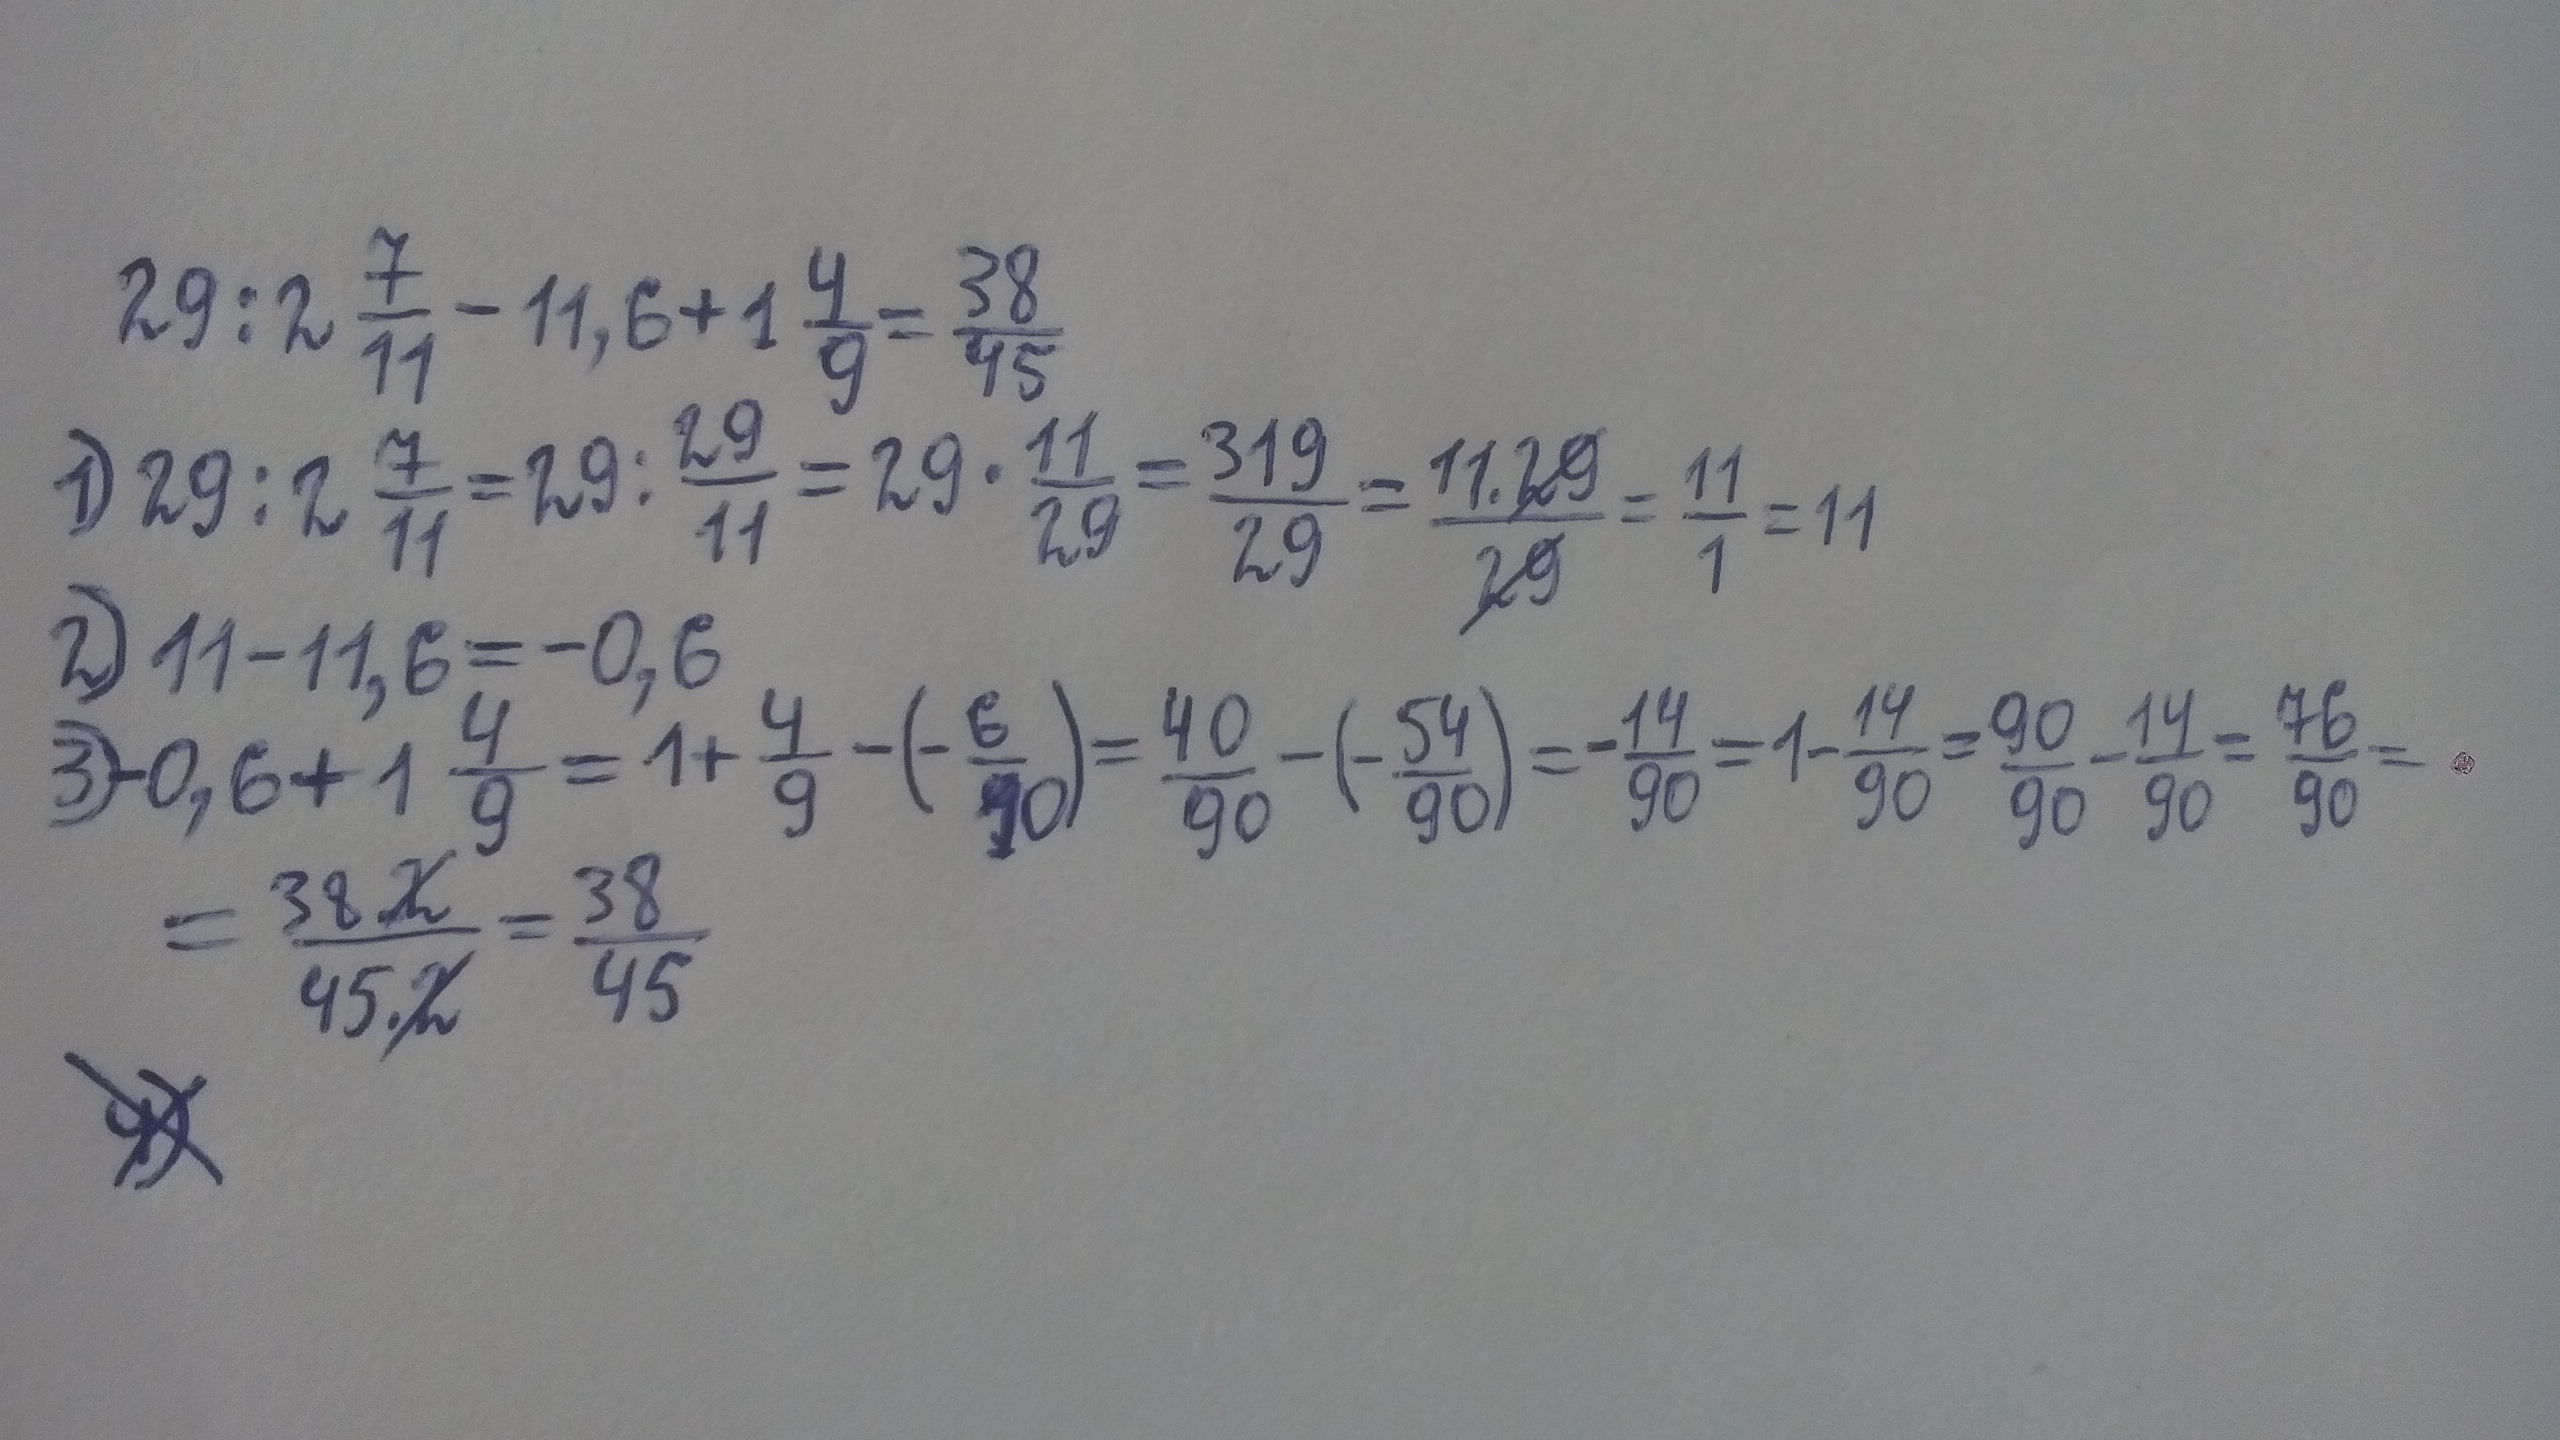 29 : 2 7/11 - 11,6 + 1 4/9 = 38/45
1) 29 : 2 7/11 = 29 : 29/11 = 29 · 11/29 = 319/29 = 11·29/29 = 11/1 = 11
2) 11 - 11,6 = -0,6
3) -0,6 + 1 4/9 = 1 + 4/9 - (- 6/10) = 40/90 - (- 54/90) = - 14/90 = 1 - 14/90 = 90/90 - 14/90 = 76/90 =
= 38·2/45·2 = 38/45
4)